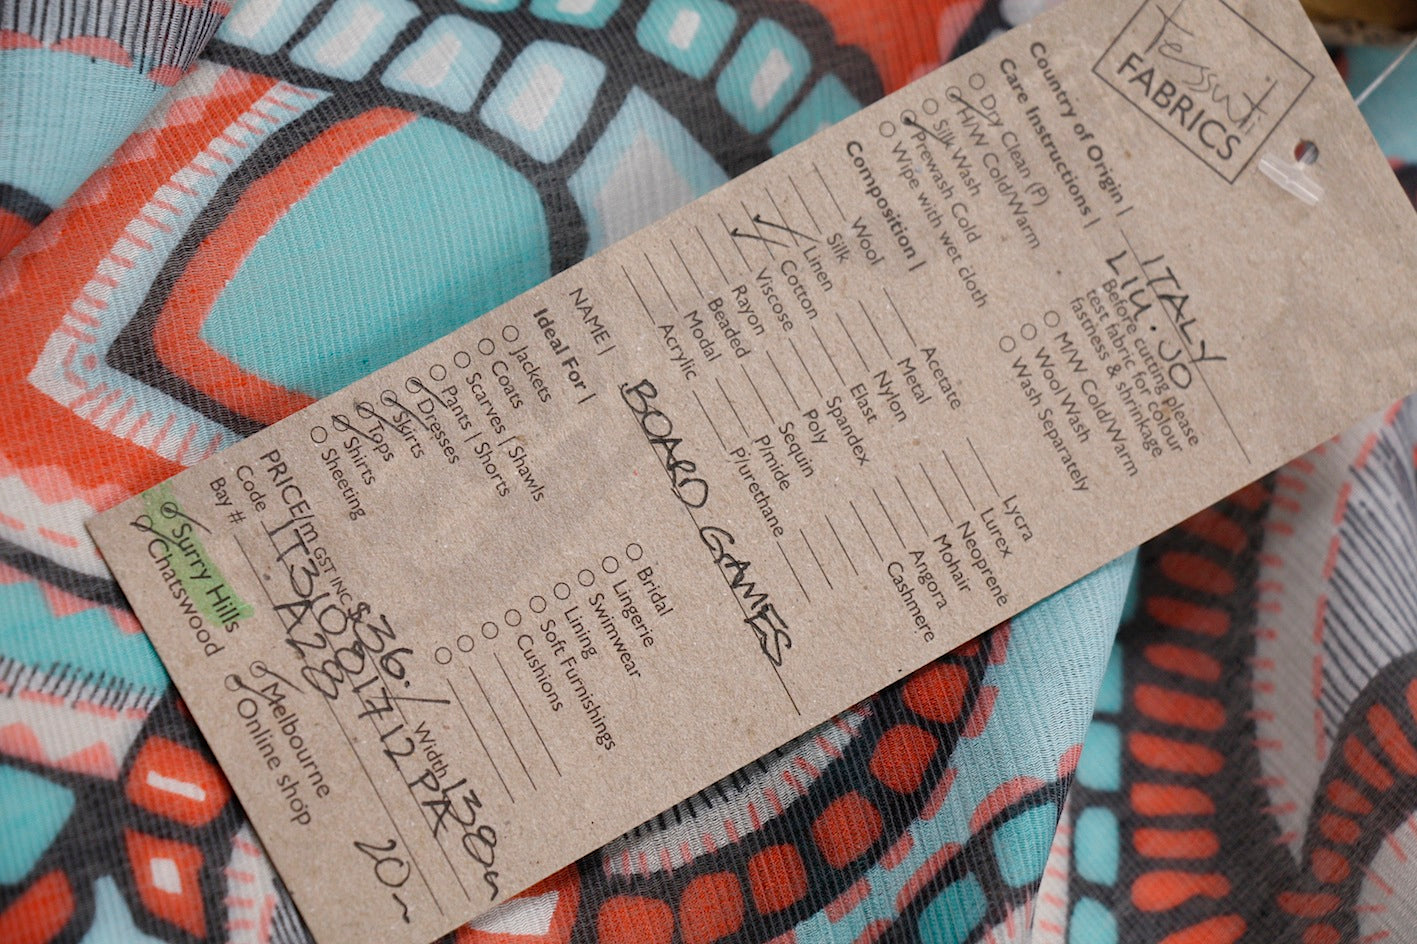 Tessuti
FABRICS
Country of Origin | ITALY
Care Instructions | LIU.JO
Dry Clean (P)
H/W Cold/Warm
Silk Wash
Prewash Cold
Wipe with wet cloth
Before cutting please
test fabric for colour
fastness & shrinkage
M/W Cold/Warm
Wool Wash
Wash Separately
Composition |
Wool
Silk
Linen
Cotton
Viscose
Rayon
Beaded
Modal
Acrylic
Acetate
Metal
Nylon
Elast
Spandex
Poly
Sequin
P/mide
P/urethane
Lycra
Lurex
Neoprene
Mohair
Angora
Cashmere
NAME | BOARD GAMES
Ideal For |
Jackets
Coats
Scarves | Shawls
Pants | Shorts
Dresses
Skirts
Tops
Shirts
Sheeting
Bridal
Lingerie
Swimwear
Lining
Soft Furnishings
Cushions
PRICE/m GST INC $36./ Width 138cm
Code 1T31081712 PA
Bay # A28
20m
Surry Hills
Chatswood
Melbourne
Online shop